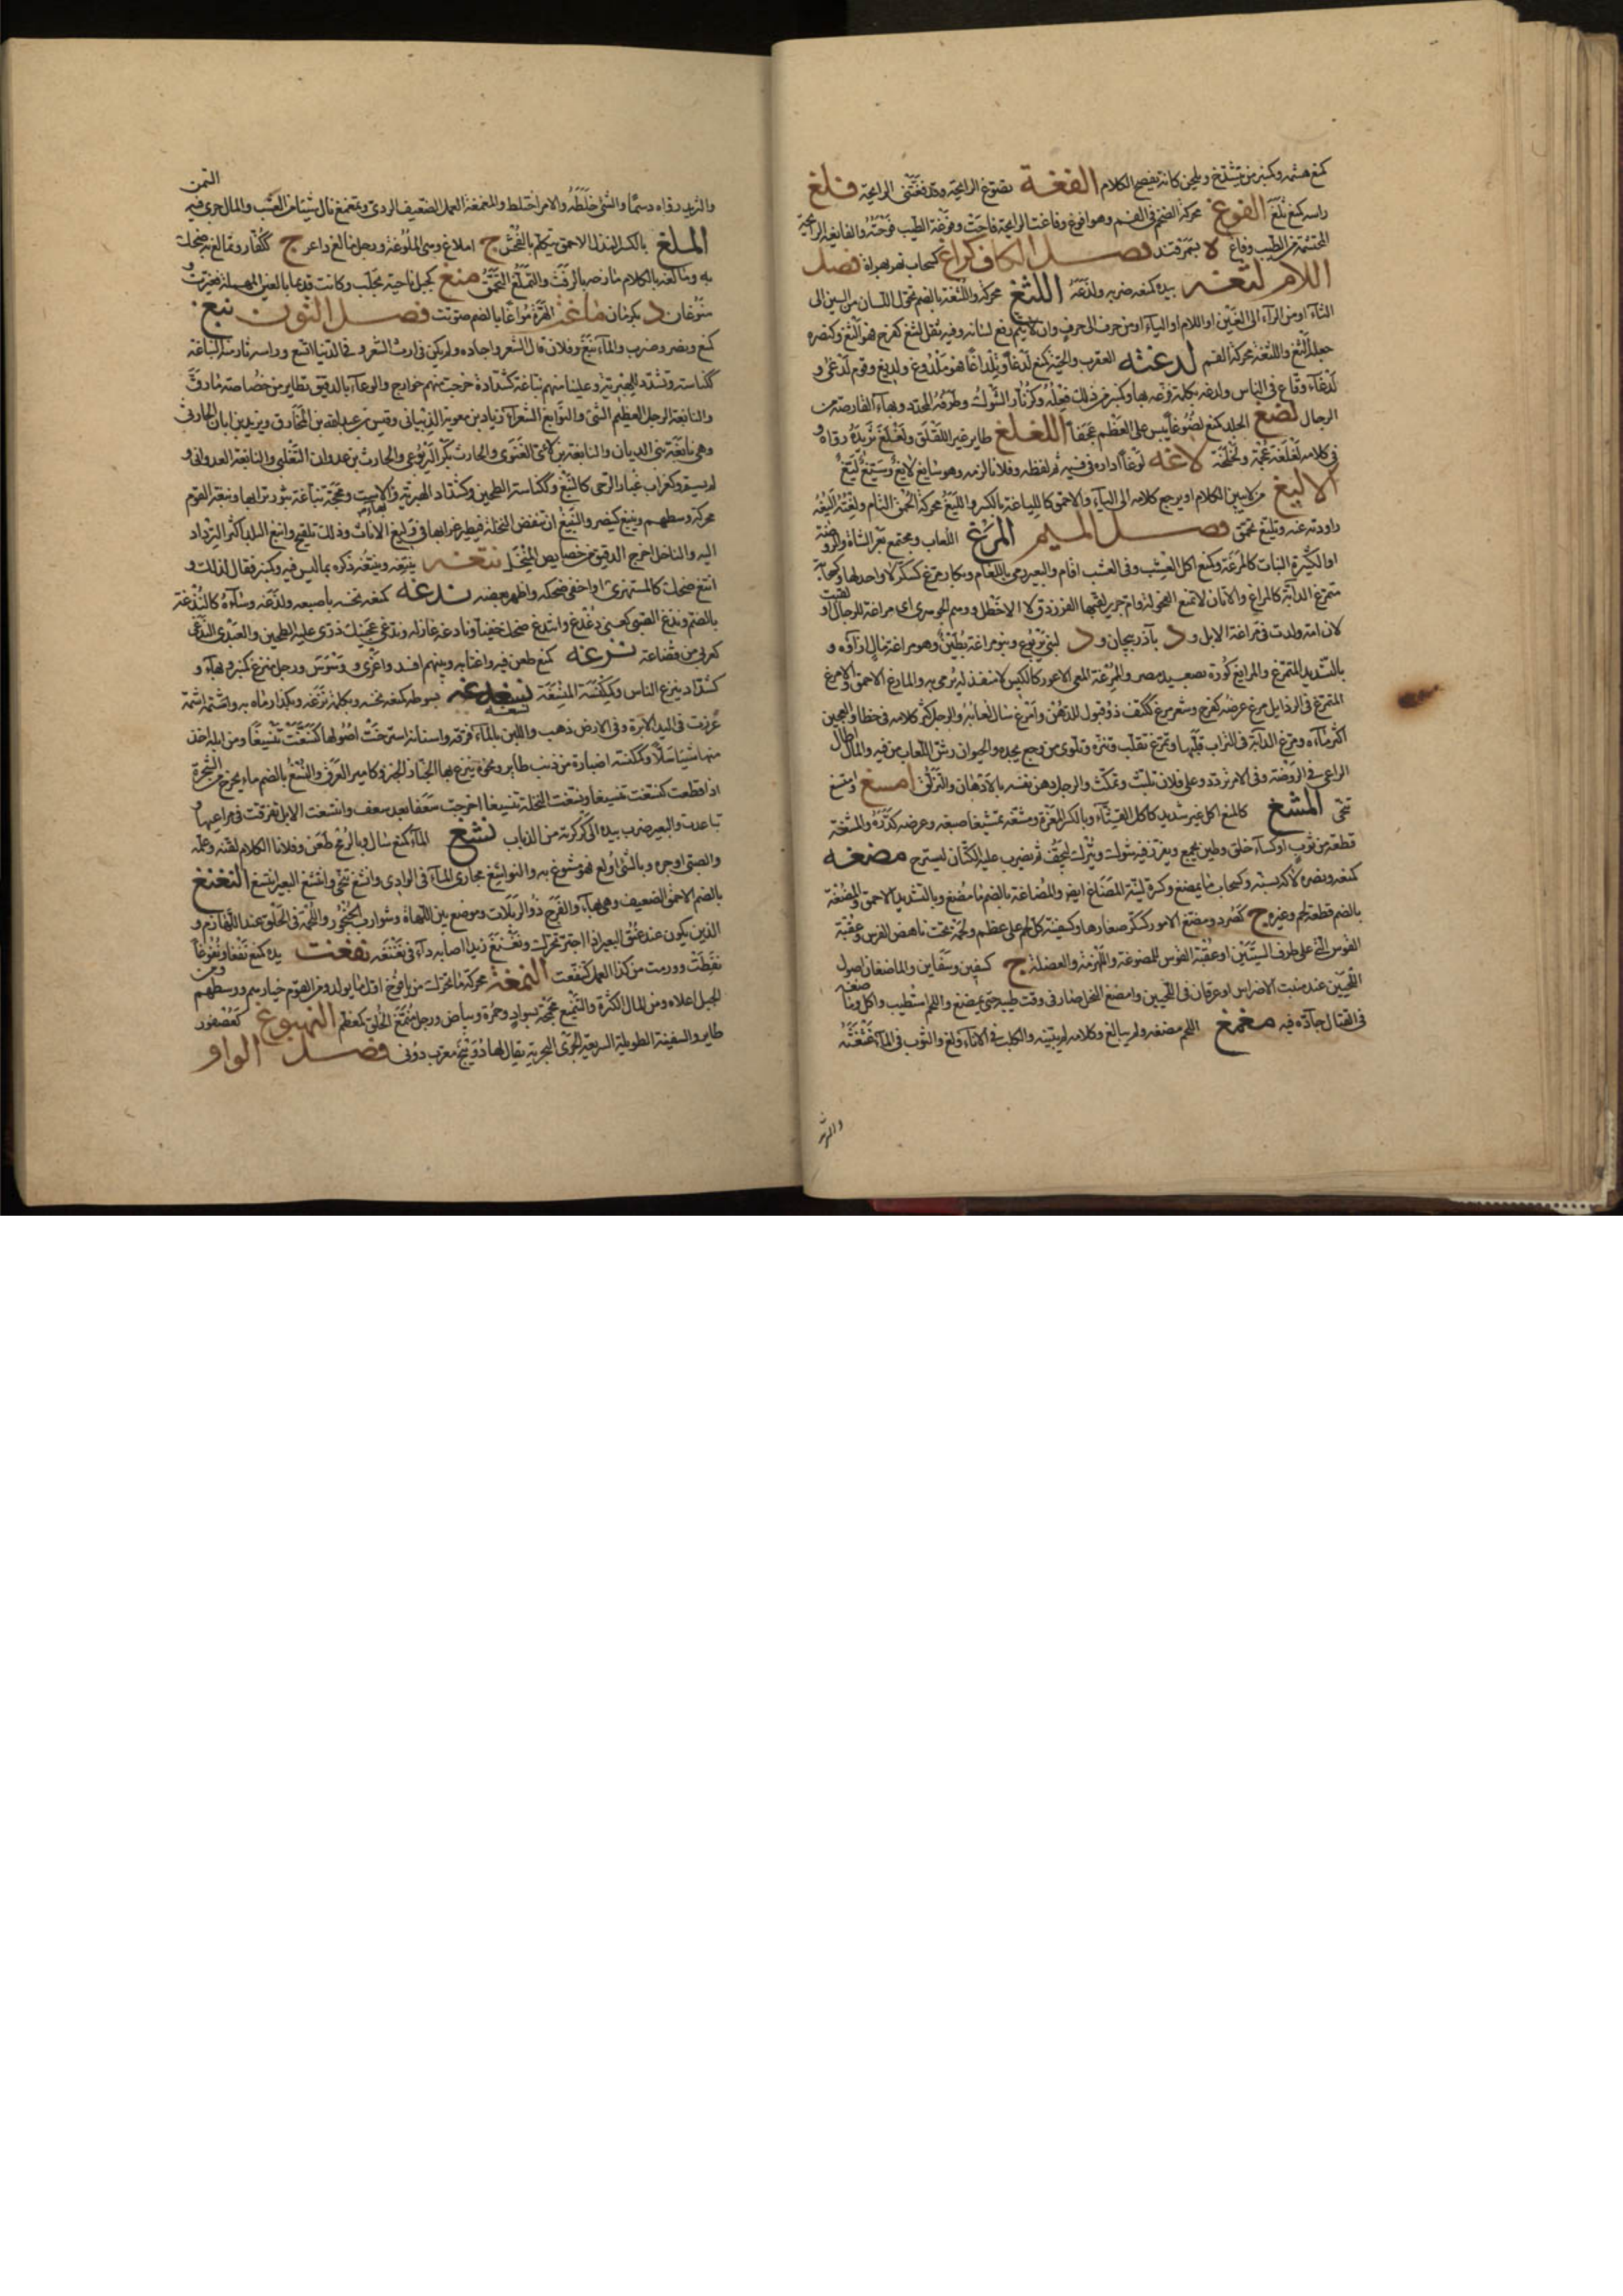 كمنع هشمه وكمنبر من يشدخ ويلحن كانه يفصح الكلام الفغة تضوع الرايحة وقد فغتنى الرايحة فلغ
راسه كمنع ثلغه الفوغ محركة الضخم فى الفم وهو افوغ وفاغت الرايحة فاحت وفوغة الطيب فوحته والفايغة الرايحة
المخشمة من الطيب وفاغ لا بسمرقند فصل الكاف كراغ كسحاب نهر بهراة فصل
اللام لتغه بيده كمنعه ضربه ولدغه اللثغ محركة واللثغة بالضم تحول اللسان من السين الى
الثاء او من الراء الى الغين او اللام او الياء او من حرف الى حرف وان لا يتم رفع لسانه وفيه ثقل لثغ كفرح فهو الثغ وكنصره
جعله الثغ واللثغة محركة الفم لدغته العقرب والحية كمنع لدغا وتلداغا فهو ملدوغ ولديغ وقوم لدغى و
لدغاء وقاع فى الناس ولدغه بكلمة نزغه بها وكمنبر من ذلك فعله وكزنار الشوك وطرفه المحدد وبهاء القارصة من
الرجال لصغ الجلد كمنع لصوغا يبس على العظم عجفا اللغلغ طاير غير اللقلق ولغلغ ثريده رواه و
فى كلامه لغلغة عجمة ولخلخة لاغه لوغا اداره فى فيه ثم لفظه وفلانا لزمه وهو سايغ لايغ وسيغ ليغ
الاليغ من لا يبين الكلام او يرجع كلامه الى الياء والاحمق كاللياغة بالكسر والليغ محركة الحمق التام ولغته اليغه
راودته عنه وتليغ تحمق فصل الميم المرغ اللعاب ومجتمع بعر الشاة والروضة
او الكثيرة النبات كالمرغة وكمنع اكل العشب وفى العشب اقام والبعير رمى باللغام وبكار مرغ كسكر لا واحد لها وكسحاب
متمرغ الدابة كالمراغ والاتان لا تمنع الفحولة وام جرير لقبها الفرزدق لا الاخطل ووهم الجوهرى اى مراغة للرجال او لقبت
لان امه ولدت فى مراغة الابل و د باذربيجان و د لبنى يربوع وبنو مراغة بطين وهو مراغة مال ازاؤه و
بالتشديد المتمرغ والمرايغ كورة بصعيد مصر والمرغة المعى الاعور كالكيس لا منفذ له يرمى به والمارغ الاحمق والامرغ
المتمرغ فى الرذايل مرغ عرضه كفرح وشعر مرغ ككتف ذو قبول للدهن وامرغ سال لعابه والرجل كثر كلامه فى خطا والعجين
اكثر ماءه ومرغ الدابة فى التراب قلبها وتمرغ تقلب وتنزه وتلوى من وجع يجده والحيوان رش اللعاب من فيه والمال اطال
الراعى فى الروضة وفى الامر تردد وعلى فلان تلبث وتمكث والرجل دهن نفسه بالادهان والتزلق امسغ وامتسغ
تنحى المشغ كالمنع اكل غير شديد كاكل القثاء وبالكسر المغرة ومشغه تمشيغا صبغه وعرضه كدره والمشغة
قطعة من ثوب او كساء خلق وطين يجمع ويغرز فيه شوك ويترك ليجف ثم يضرب عليه الكتان ليسرح مضغه
كمنعه ونصره لاكه بسنه وكسحاب ما يمضغ وكرة لينة المضاغ ايضا والمضاغة بالضم ما مضغ وبالتشديد الاحمق والمضغة
بالضم قطعة لحم وغيره ج كصرد ومضغ الامور كسكر صغارها وكسفينة كل لحم على عظم ولحمة تحت ناهض الفرس وعقبة
القوس التى على طرف السيتين او عقبة القوس الممضوغة واللهزمة والعضلة ج كسفين وسفاين والماضغان اصول
اللحيين عند منبت الاضراس او عرقان فى اللحيين وامضغ النخل صار فى وقت طيبه حتى يمضغ واللحم استطيب واكل وماضغه
فى القتال جاده فيه مغمغ اللحم مضغه ولم يبالغ وكلامه لم يبينه والكلب فى الاناء ولغ والثوب فى الماء غثغثه
والثريد
والثريد رواه دسما والشى خلطه والامر اختلط والمغمغة العمل الضعيف الردى وتمغمغ نال شيا من العشب والمال جرى فيه السمن
الملغ بالكسر النذل الاحمق يتكلم بالفحش ج املاغ وهى الملوغة ورجل مالغ داعر ج ككفار وتمالغ به ضحك
به ومالغه بالكلام مازحه بالرفث والتملغ التحمق منغ كجبل ناحية بحلب وكانت قديما بالعين المهملة فغيرت و
منوغان د بكرمان ماغت الهرة مواغا بالضم صوتت فصل النون نبغ
كمنع ونصر وضرب والماء نبغ وفلان قال الشعر واجاده ولم يكن فى ارث الشعر و فى الدنيا اتسع وراسه ثار منه النباغة
ككناسة وتشدد للهبرية وعلينا منهم نباغة كشدادة خرجت منهم خوارج والوعاء بالدقيق تطاير من خصاصه ما دق
والنابغة الرجل العظيم الشان والنوابغ الشعراء زياد بن معوية الذبيانى وقيس بن عبد الله بن المخارق ويزيد بن ابان الحارثى
وهى نابغة بنى الديان والنابغة بن لاى الغنوى والحارث بن بكر اليربوعى والحارث بن عدوان التغلبى والنابغة العدوانى و
لم يسم وكغراب غبار الرحى كالنبغ وككناسة الطحين وكشداد الهبرية والاست ومحجة نباغة يثور ترابها ونبغة القوم
محركة وسطهم وينبغ كينصر والتنبيغ ان تنفض النخلة فيطير غبارها فى وليغ الاناث وذلك تلقيح وانبغ البلد اكثر الترداد
اليه والناخل اخرج الدقيق من خصايص المنخل نتغه ينتغه وينتغه ذكره بما ليس فيه وكمنبر فعال لذلك و
انتغ ضحك كالمستهزى او اخفى ضحكه واظهر بعضه ندغه كمنعه نخسه باصبعه ولدغه وساءه كالندغة
بالضم وندغ الصبى كعنى دغدغ وانتدغ ضحك خفيا ونادغه غازله وندغى عجينك ذرى عليه الطحين والعبدى الندغى
كعربى من قضاعة نزغه كمنع طعن فيه واغتابه وبينهم افسد واغرى ووسوس ورجل منزغ كمنبر وبهاء و
كشداد ينزغ الناس وكمكنسة المنسغة نسغه بسوطه كمنعه نخسه وبكلمة نزغه وبكذا رماه به والشتمة اشتمه
غرزت فى اليد الابرة وفى الارض ذهب واللبن بالماء فرقه واسنانه استرخت اصولها كنسغت تنسيغا ومن ابله اخذ
منها شيا سلا وكمكنسة اضبارة من ذنب طاير ونحوه ينزغ بها الخباز الخبز وكامير العرق والنسغ بالضم ماء يخرج من الشجرة
اذا قطعت كنسغت تنسيغا ونسغت النخلة تنسيغا اخرجت سعفا بعد سعف وانتسغت الابل تفرقت فى مراعيها و
تباعدت والبعير ضرب بيده الى كركرته من الذباب نشغ الماء كمنع سال وبالرمح طعن وفلانا الكلام لقنه وعلمه
والصبى اوجره وبالشى اولع فهو منشوغ به والنواشغ مجارى الماء فى الوادى وانشغ تنحى وانتشغ البعير انتسغ النغنغ
بالضم الاحمق الضعيف وهى بهاء والفرج ذو الربلات وموضع بين اللهاة وشوارب الحنجور واللحمة فى الحلق عند اللهازم و
الذين يكون عند عنق البعير اذا اجتر تحرك ونغنغ زيدا اصابه داء فى نغنغه نفغت يده كمنع نفغا ونفوغا
نفطت وورمت من كد العمل كتنفغت النمغة محركة ما تحرك من يافوخ اول ما يولد ومن القوم خيارهم ووسطهم ومن
الجبل اعلاه ومن المال الكثرة والتنميغ مجمجة بسواد وحمرة وبياض ورجل منمغ الخلق كمعظم النهبوغ كعصفور
طاير والسفينة الطويلة السريعة الجرى البحرية يقال لها دونيج معرب دونى فصل الواو